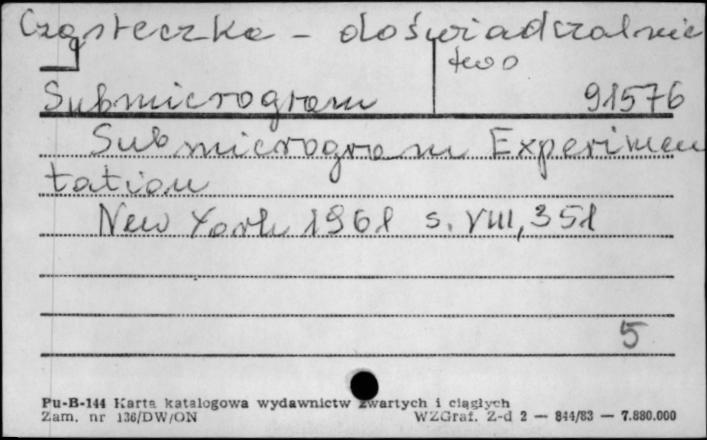 Cząsteczka - doświadczalnic
two
Submicrogram 91576
Submicrogram Experimen
tation
New York 1961 s. VIII, 351
5
Pu-B-144 Karta katalogowa wydawnictw zwartych i ciągłych
Zam. nr 136/DW/ON WZGraf. Z-d 2 — 844/83 — 7.880.000